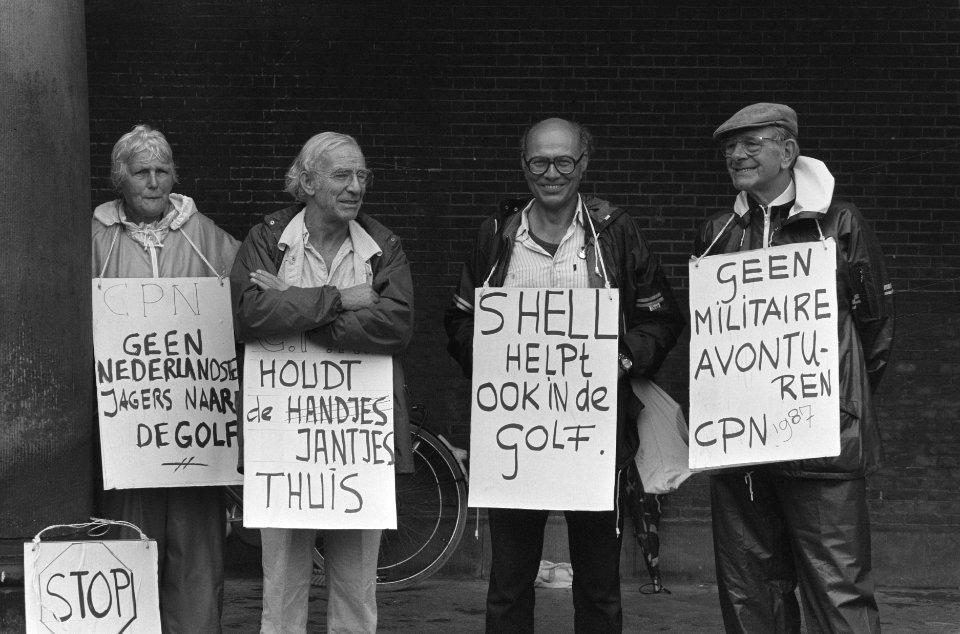 CPN
GEEN
NEDERLANDSE
JAGERS NAAR
DE GOLF
HOUDT
de HANDJES
JANTJES
THUIS
SHELL
HELPt
OOK iN de
GOLF.
GEEN
MiLiTAIRE
AVONTU-
REN
CPN 1987
STOP